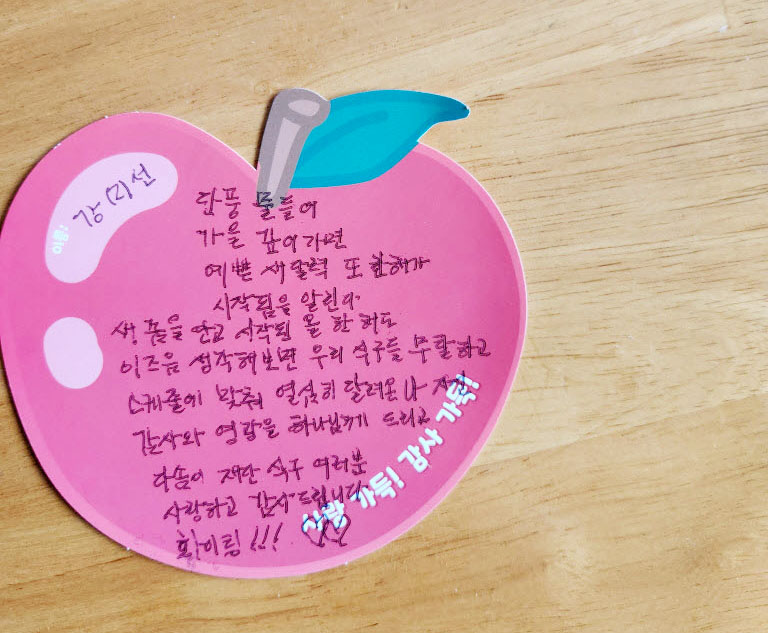 이름:
강미선
단풍 물들어
가을 깊어가면
예쁜 새달력 또 한해가
시작됨을 알린다.
새 품을 안고 시작된 올 한 해도
이즈음 생각해보면 우리 식구들 무탈하고
스케줄에 맞춰 열심히 달려온 나 자신
감사와 영광을 하나님께 드리고
다솜이 재단 식구 여러분
사랑하고 감사드립니다
화이팅!!!
사랑 가득! 감사 가득!